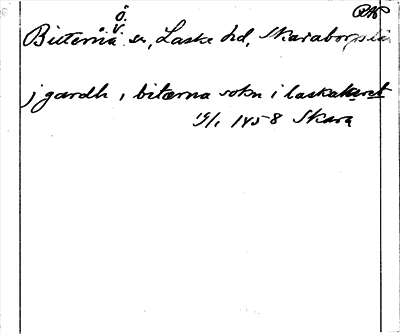 RAP
Ö.
V.
Bitterna sn, Laske hd, Skaraborgs län
j gardh i bitærna sokn i laskahæret
19/1 1458 Skara